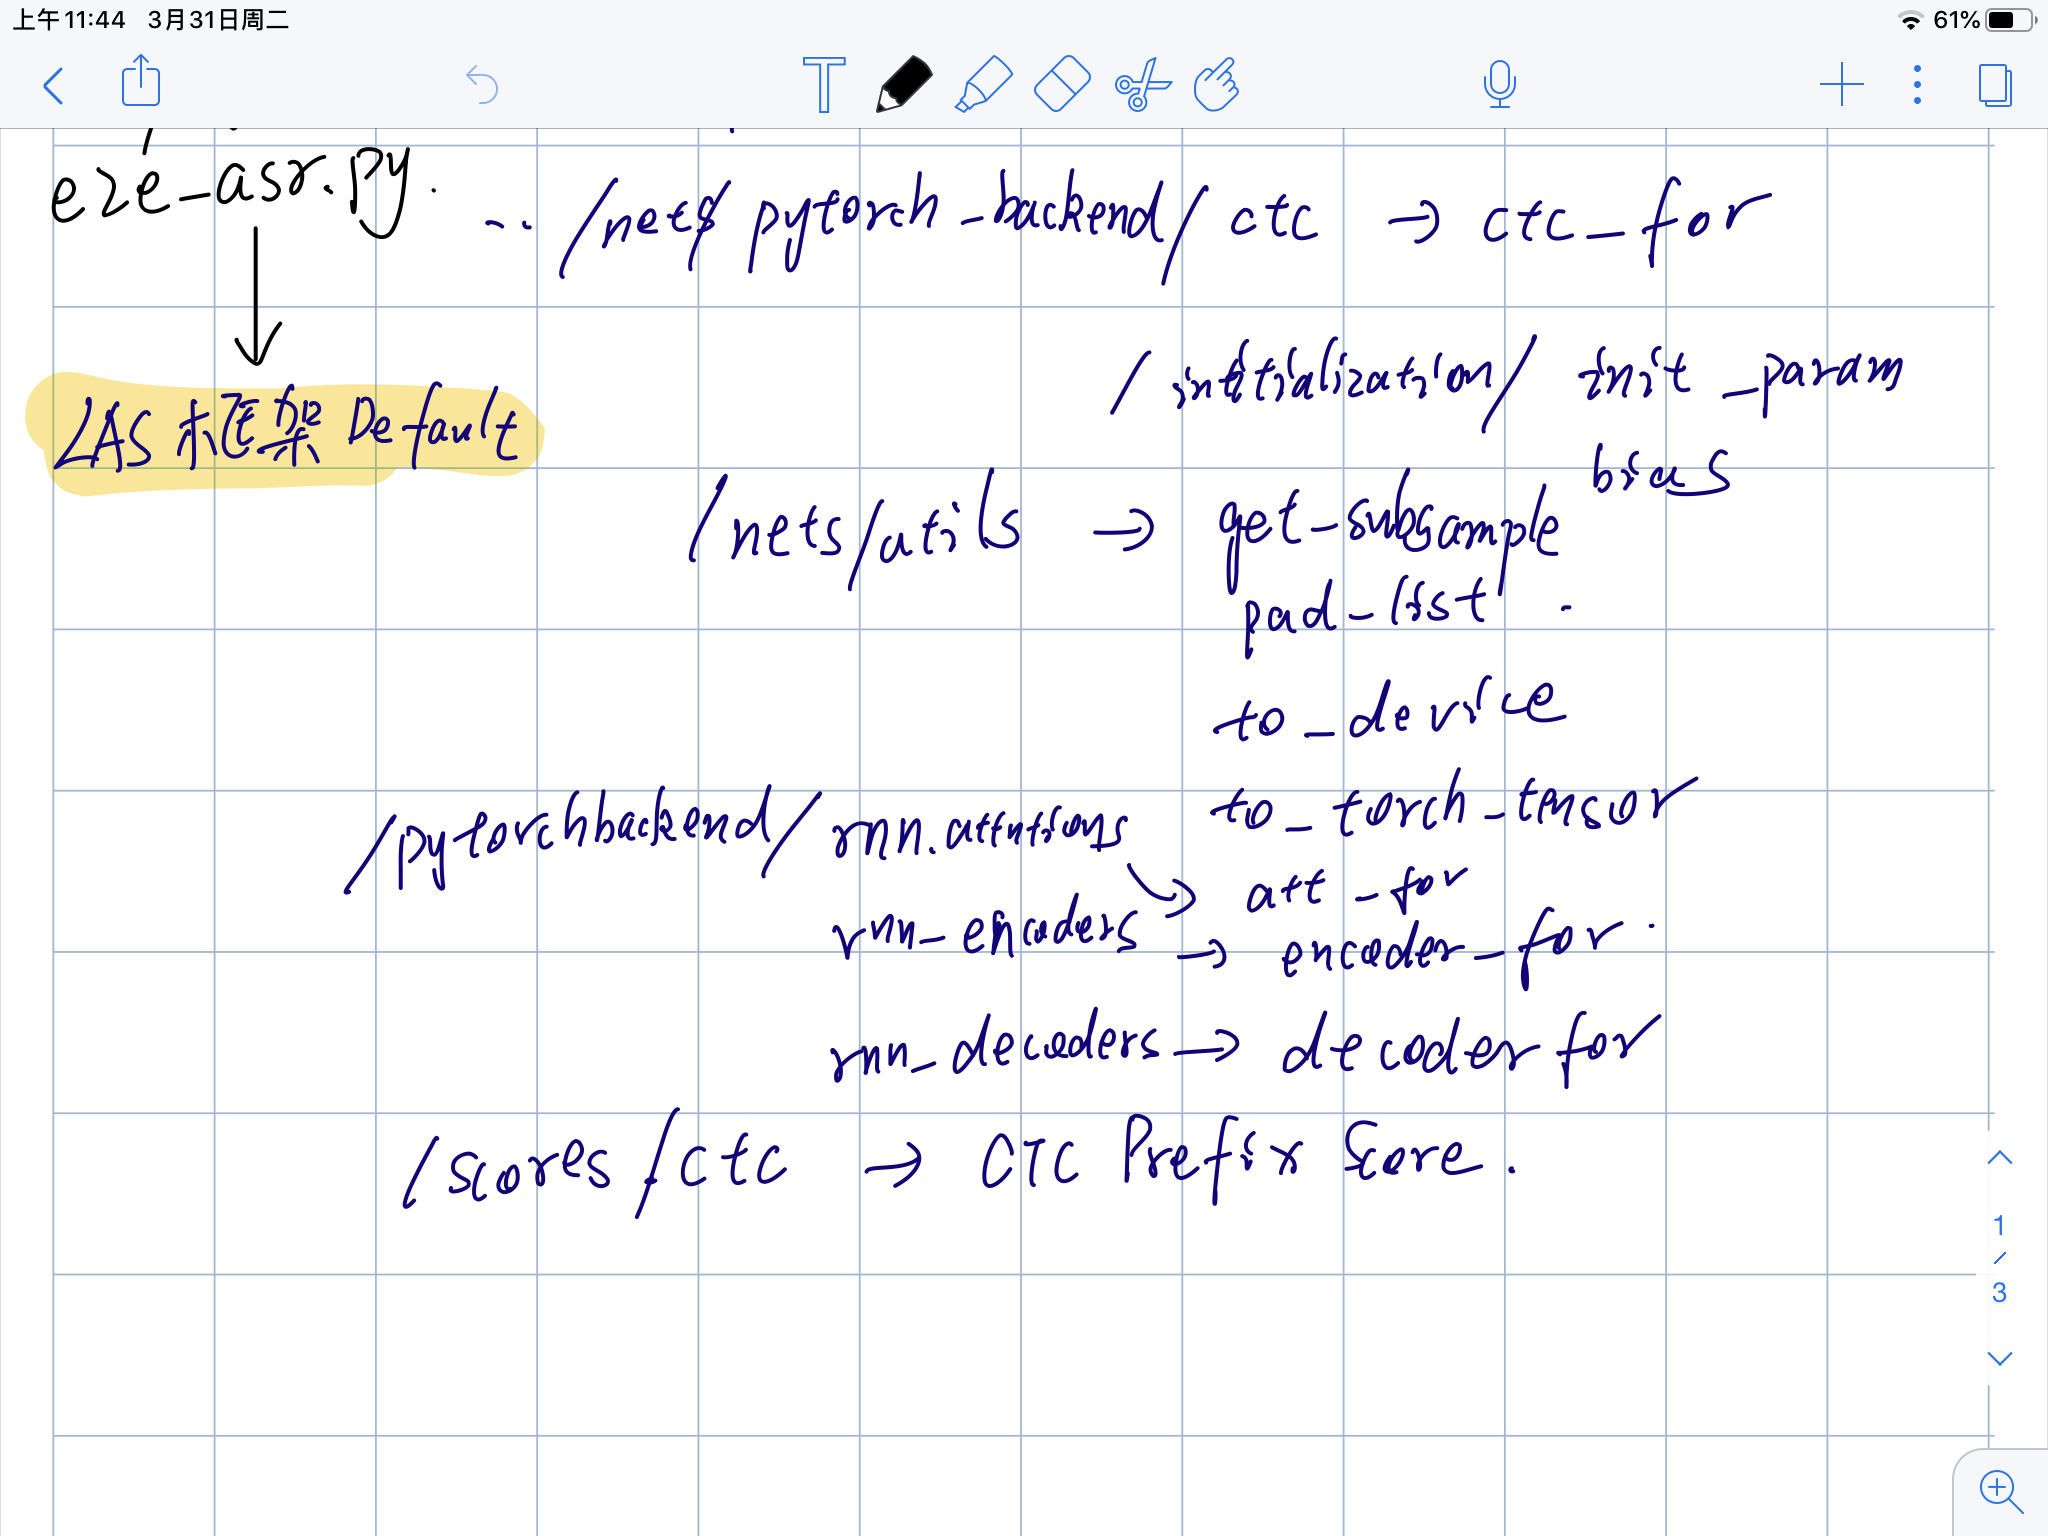 上午11:44 3月31日周二
61%
T
e2e_asr.py.
../nets/pytorch_backend/ctc → ctc_for
/intitialization/init_param
LAS框架 Default
bias
/nets/utils → get_subsample
pad_list.
to_device
to_torch_tensor
/pytorchbackend/rnn.attntions → att_for
rnn_encoders → encoder_for.
rnn_decoders → decoder for
/scores/ctc → CTC Prefix Score.
1
/
3